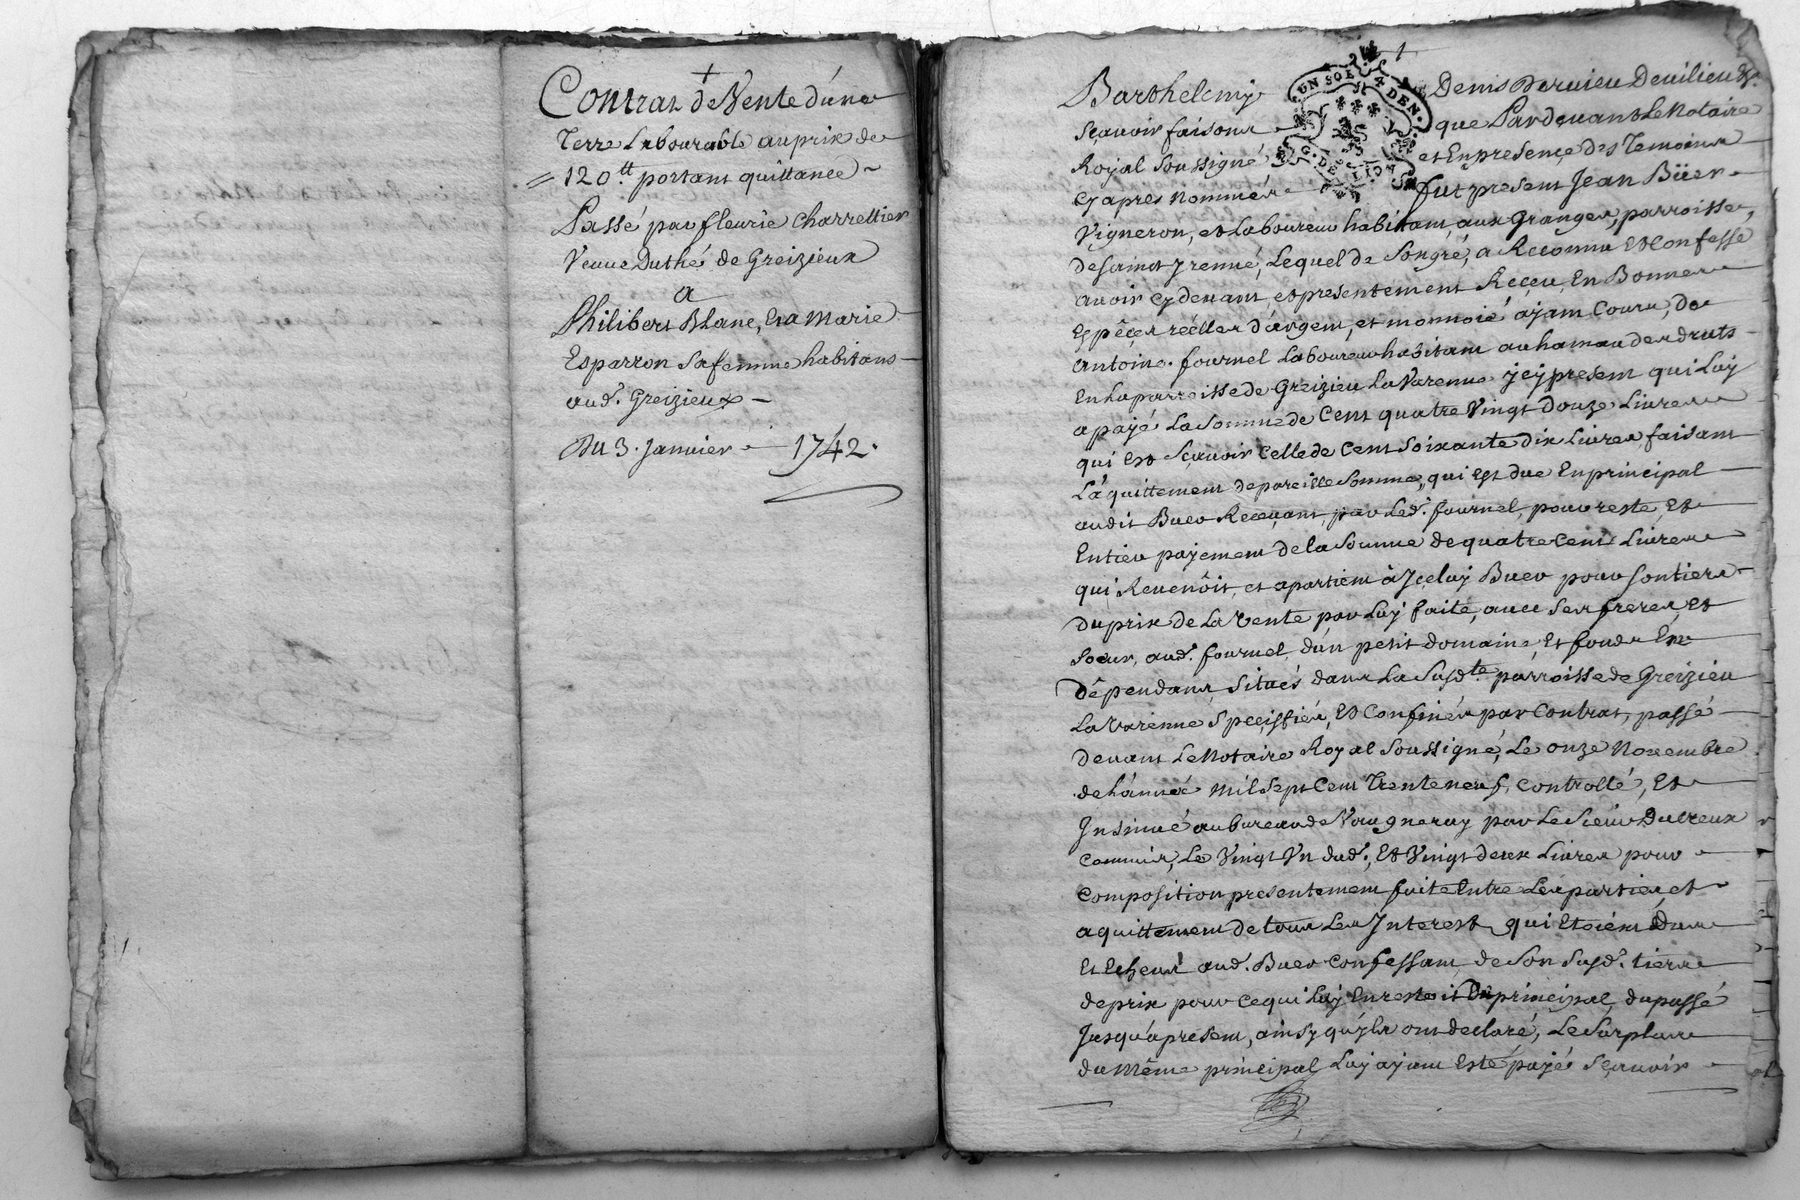 +
Contrat de Vente d'une
Terre Labourable au prix de
= 120tt portant quittance ~
Passé par fleurie Charrettier
Veuve Duthé de Greizieux
a
Philibert Blanc, Et a Marie
Esparron sa femme habitans
aud. Greizieux –
Du 3. Janvier – 1742.
1
Barthelemy Denis Dervieu Devilieu &c.
UN SOL 4 DEN.
G. DE LION
Sçavoir faisons que Pardevant Le Notaire
Royal Soussigné et En presence des Temoins
Cy apres Nommés fut present Jean Büer
Vigneron, et Laboureur habitant aux Granges, parroisse,
de saint Jrenné, Lequel de Songré, a Reconnu Et Confessé
avoir cy devant, et presentement Reçeu En Bonnes
Espêces réelles d'argent, et monnoié ayant Cours, de
Antoine fournel Laboureur habitant au hameau des druts
En La parroisse de Greizieu La Varenne jcy present qui Luy
a payé La Somme de Cent quatre Vingt douze Livres
qui Est Sçavoir Celle de Cent Soixante dix Livres faisant
L'áquittement de pareille Somme, qui Est due En principal
audit Buer Recevant, par Led. fournel, pour reste, Et
Entier payement de la Somme de quatre Cent Livres
qui Revenôit, et apartient à Jçeluy Buer pour Son tiers
du prix de La Vente par Luy faite, avec Ses freres, Et
Soeur, aud. fournel, d'un petit domaine, Et fonds En
dêpendans, Situés dans La Susdte parroisse de Greizieu
La Varenne Speciffiés, Et Confinés par Contrat, passé
devant Le Notaire Royal Soussigné, Le onze Novembre
de L'année mil Sept Cent Trente neuf, Controllé, Et
Insinué au bureau de Vaugneray par Le Sieur Ducreux
Commis, Le Vingt Un dud., Et Vingt deux Livres pour
Composition presentement faite Entre Les parties, et
aquittement de tous Les Interest, qui Etoient Dus
Et Echeus aud. Buer Confessant, de Son Susd. tiers
de prix pour Ce qui Luy En restoit En principal, du passé
Jusqu'á present, ainsy qu'yls ont declaré, Le Surplus
du Même principal Luy ayant Esté payé Sçavoir